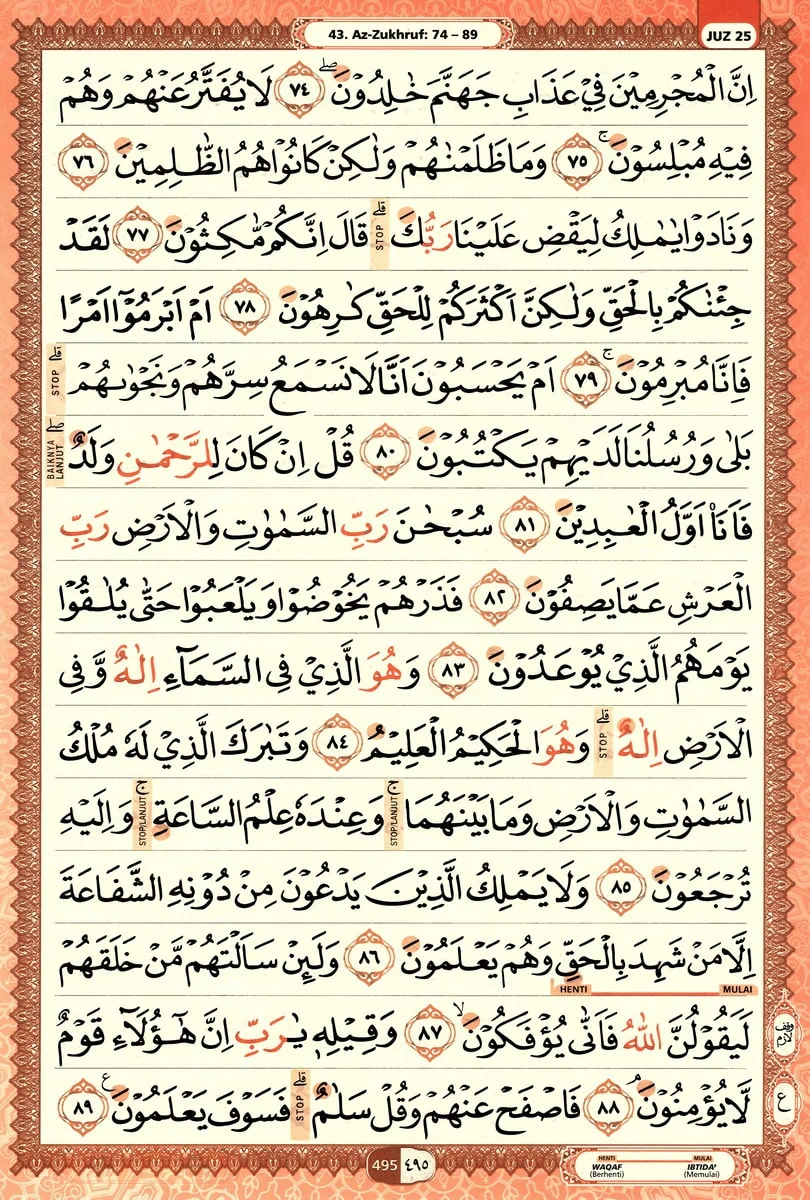 43. Az-Zukhruf: 74 – 89
JUZ 25
اِنَّ الْمُجْرِمِيْنَ فِيْ عَذَابِ جَهَنَّمَ خٰلِدُوْنَۖ ٧٤ لَا يُفَتَّرُ عَنْهُمْ وَهُمْ
فِيْهِ مُبْلِسُوْنَۚ ٧٥ وَمَا ظَلَمْنٰهُمْ وَلٰكِنْ كَانُوْا هُمُ الظّٰلِمِيْنَ ٧٦
وَنَادَوْا يٰمٰلِكُ لِيَقْضِ عَلَيْنَا رَبُّكَۗ STOP قَالَ اِنَّكُمْ مّٰكِثُوْنَ ٧٧ لَقَدْ
جِئْنٰكُمْ بِالْحَقِّ وَلٰكِنَّ اَكْثَرَكُمْ لِلْحَقِّ كٰرِهُوْنَ ٧٨ اَمْ اَبْرَمُوْٓا اَمْرًا
فَاِنَّا مُبْرِمُوْنَۚ ٧٩ اَمْ يَحْسَبُوْنَ اَنَّا لَا نَسْمَعُ سِرَّهُمْ وَنَجْوٰىهُمْۗ STOP
بَلٰى وَرُسُلُنَا لَدَيْهِمْ يَكْتُبُوْنَ ٨٠ قُلْ اِنْ كَانَ لِلرَّحْمٰنِ وَلَدٌۖ BAIKNYA LANJUT
فَاَنَا۠ اَوَّلُ الْعٰبِدِيْنَ ٨١ سُبْحٰنَ رَبِّ السَّمٰوٰتِ وَالْاَرْضِ رَبِّ
الْعَرْشِ عَمَّا يَصِفُوْنَ ٨٢ فَذَرْهُمْ يَخُوْضُوْا وَيَلْعَبُوْا حَتّٰى يُلٰقُوْا
يَوْمَهُمُ الَّذِيْ يُوْعَدُوْنَ ٨٣ وَهُوَ الَّذِيْ فِى السَّمَاۤءِ اِلٰهٌ وَّفِى
الْاَرْضِ اِلٰهٌۗ STOP وَهُوَ الْحَكِيْمُ الْعَلِيْمُ ٨٤ وَتَبٰرَكَ الَّذِيْ لَهٗ مُلْكُ
السَّمٰوٰتِ وَالْاَرْضِ وَمَا بَيْنَهُمَاۚ STOP/LANJUT وَعِنْدَهٗ عِلْمُ السَّاعَةِۚ STOP/LANJUT وَاِلَيْهِ
تُرْجَعُوْنَ ٨٥ وَلَا يَمْلِكُ الَّذِيْنَ يَدْعُوْنَ مِنْ دُوْنِهِ الشَّفَاعَةَ
اِلَّا مَنْ شَهِدَ بِالْحَقِّ وَهُمْ يَعْلَمُوْنَ ٨٦ وَلَىِٕنْ سَاَلْتَهُمْ مَّنْ خَلَقَهُمْ
HENTI MULAI
لَيَقُوْلُنَّ اللّٰهُ فَاَنّٰى يُؤْفَكُوْنَۙ ٨٧ وَقِيْلِهٖ يٰرَبِّ اِنَّ هٰٓؤُلَاۤءِ قَوْمٌ
وقف لازم
لَّا يُؤْمِنُوْنَۘ ٨٨ فَاصْفَحْ عَنْهُمْ وَقُلْ سَلٰمٌۗ STOP فَسَوْفَ يَعْلَمُوْنَ ࣖ ٨٩
ع
495 ٤٩٥
HENTI MULAI
WAQAF (Berhenti) IBTIDA' (Memulai)